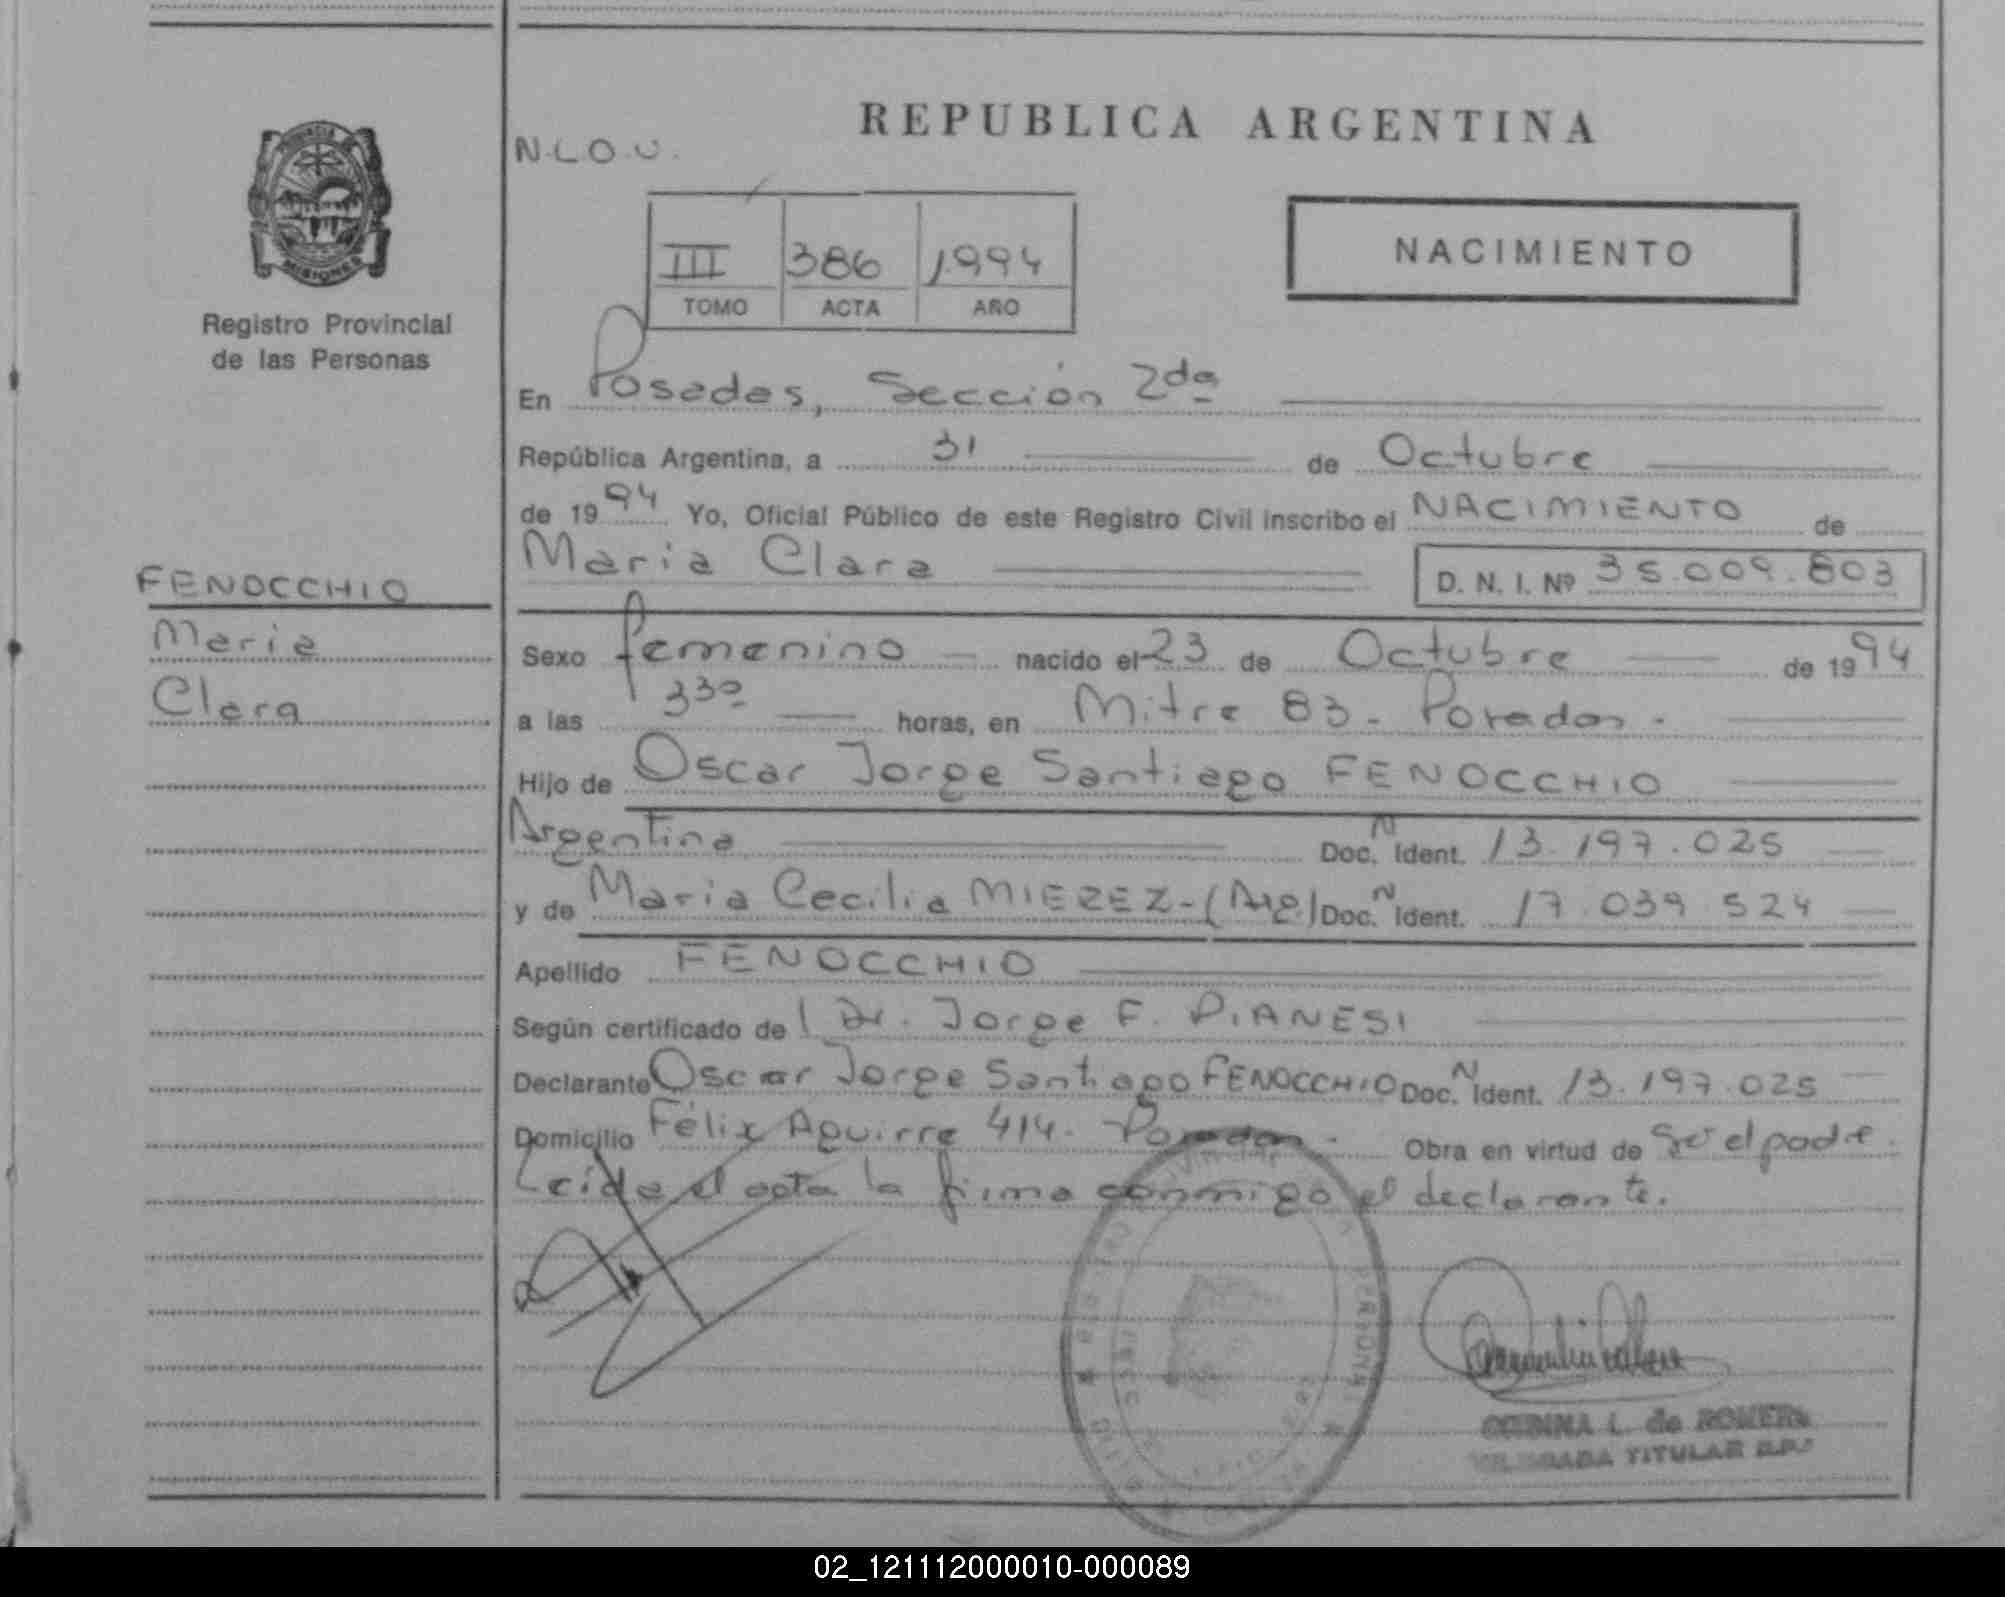 REPUBLICA ARGENTINA
N.L.O.U.
NACIMIENTO
III 386 1994
TOMO ACTA AÑO
MISIONES
Registro Provincial
de las Personas
En Posadas, Sección 2da
República Argentina, a 31 de Octubre
de 1994 Yo, Oficial Público de este Registro Civil inscribo el NACIMIENTO de
Maria Clara D. N. I. Nº 35.009.803
FENOCCHIO
Maria
Clara
Sexo femenino nacido el 23 de Octubre de 1994
a las 330 horas, en Mitre 83 - Posadas.
Hijo de Oscar Jorge Santiago FENOCCHIO
Argentina Doc. N Ident. 13.197.025
y de Maria Cecilia MIEREZ - (Arg.) Doc. N Ident. 17.039.524
Apellido FENOCCHIO
Según certificado de l Dr. Jorge F. PIANESI
Declarante Oscar Jorge Santiago FENOCCHIO Doc. N Ident. 13.197.025
Domicilio Félix Aguirre 414 - Posadas. Obra en virtud de Ser el padre.
Leida el acta la firma conmigo el declarante.
L. de ROMERO
TITULAR
02_121112000010-000089